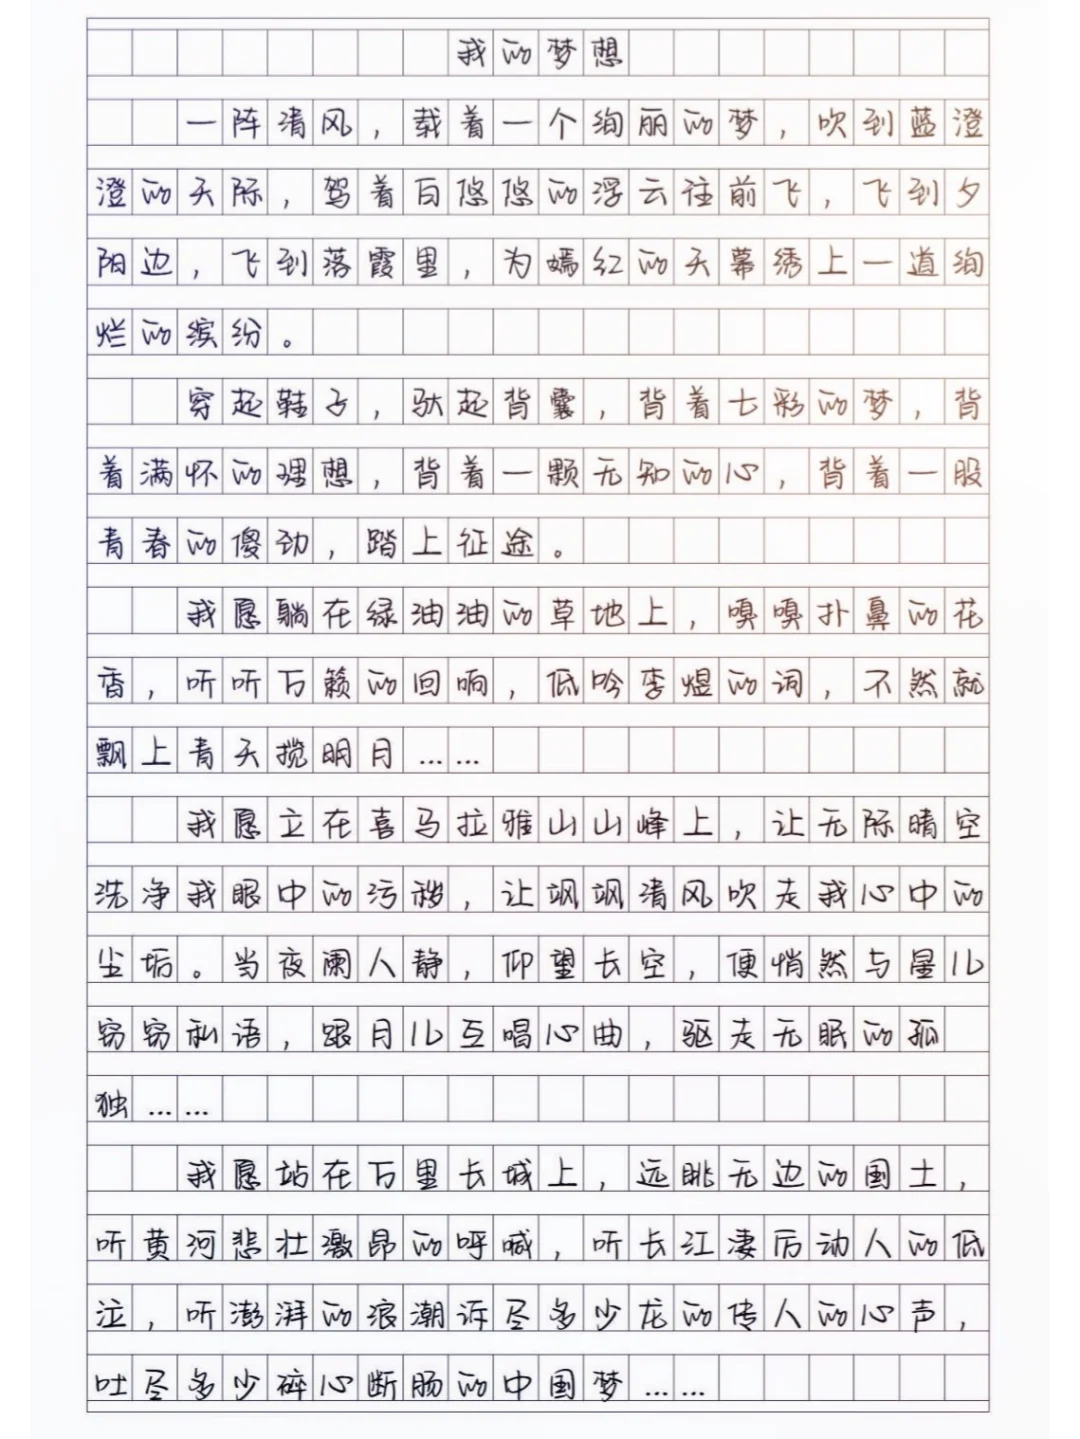 我的梦想
一阵清风，载着一个绚丽的梦，吹到蓝澄
澄的天际，驾着白悠悠的浮云往前飞，飞到夕
阳边，飞到落霞里，为嫣红的天幕绣上一道绚
烂的缤纷。
穿起鞋子，驮起背囊，背着七彩的梦，背
着满怀的理想，背着一颗无知的心，背着一股
青春的傻劲，踏上征途。
我愿躺在绿油油的草地上，嗅嗅扑鼻的花
香，听听万籁的回响，低吟李煜的词，不然就
飘上青天揽明月……
我愿立在喜马拉雅山山峰上，让无际晴空
洗净我眼中的污秽，让飒飒清风吹走我心中的
尘垢。当夜阑人静，仰望长空，便悄然与星儿
窃窃私语，跟月儿互唱心曲，驱走无眠的孤
独……
我愿站在万里长城上，远眺无边的国土，
听黄河悲壮激昂的呼喊，听长江凄厉动人的低
泣，听澎湃的浪潮诉尽多少龙的传人的心声，
吐尽多少碎心断肠的中国梦……